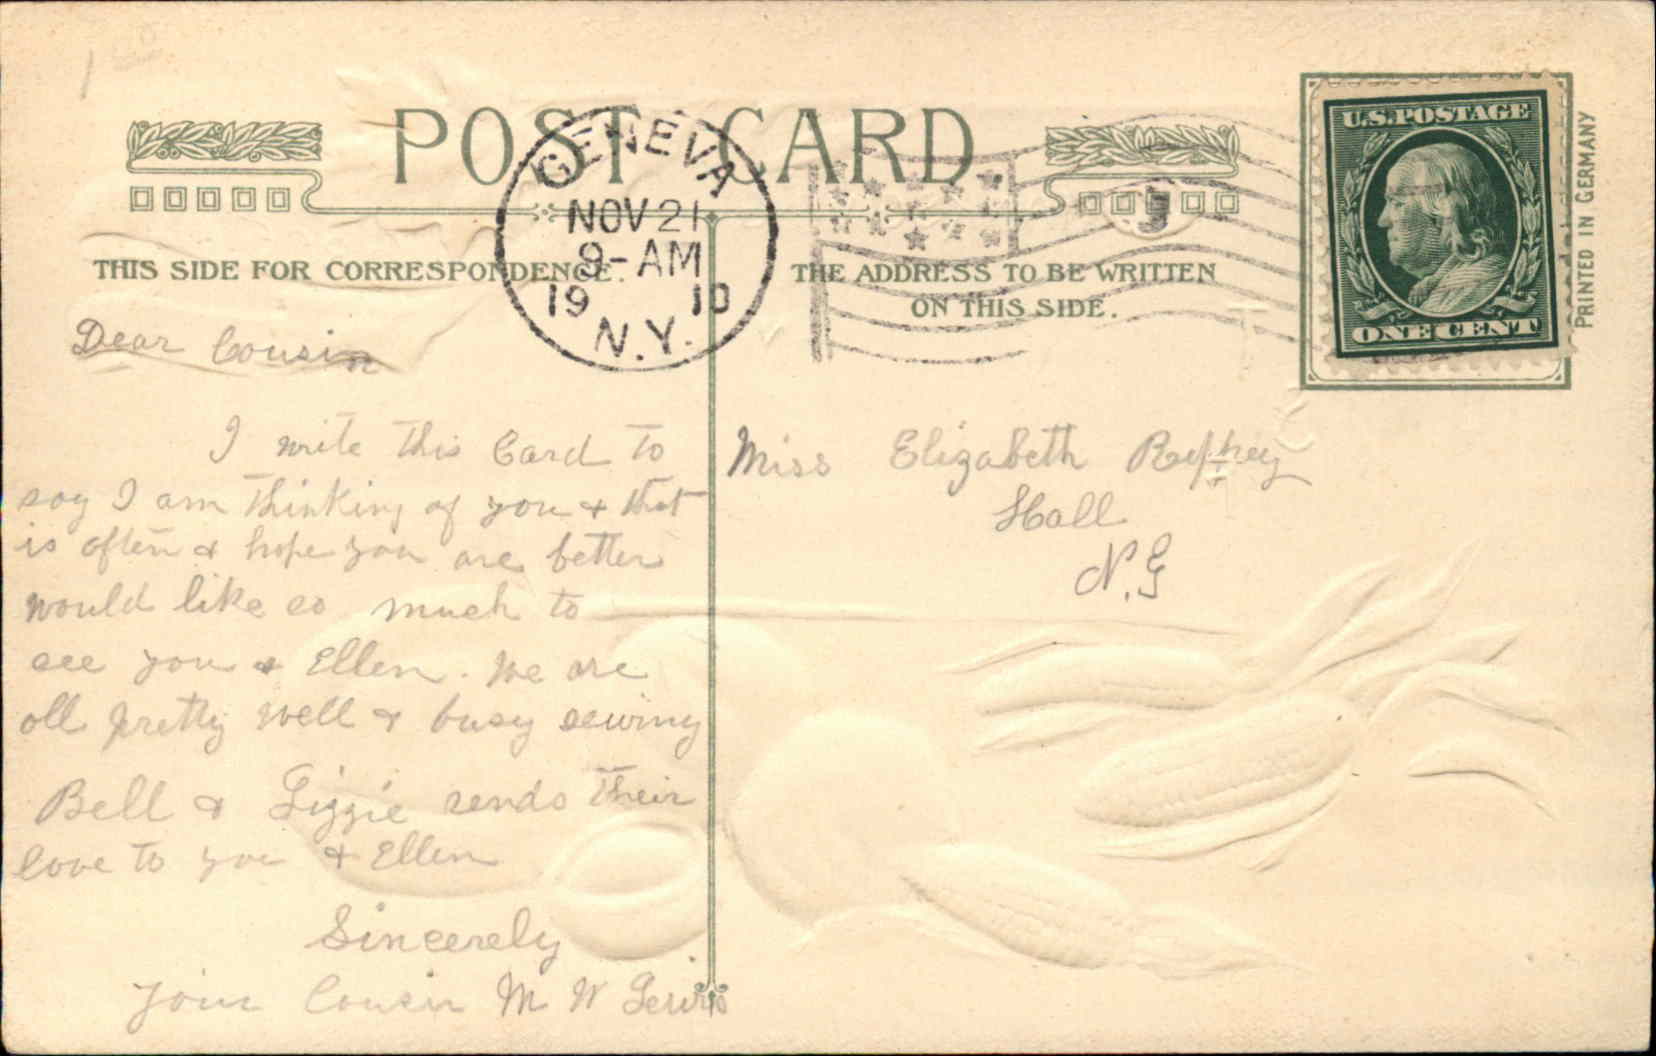 100
POST CARD
GENEVA
NOV 21
9-AM
19 10
N.Y.
THIS SIDE FOR CORRESPONDENCE.
THE ADDRESS TO BE WRITTEN
ON THIS SIDE.
U.S. POSTAGE
ONE CENT
PRINTED IN GERMANY
Dear Cousin
I write this Card to
say I am thinking of you & that
is often & hope you are better
would like so much to
see you & Ellen. We are
all pretty well & busy sewing
Bell & Lizzie sends their
love to you & Ellen
Sincerely
Your Cousin M W Lewis
Miss Elizabeth
Hall
N.Y